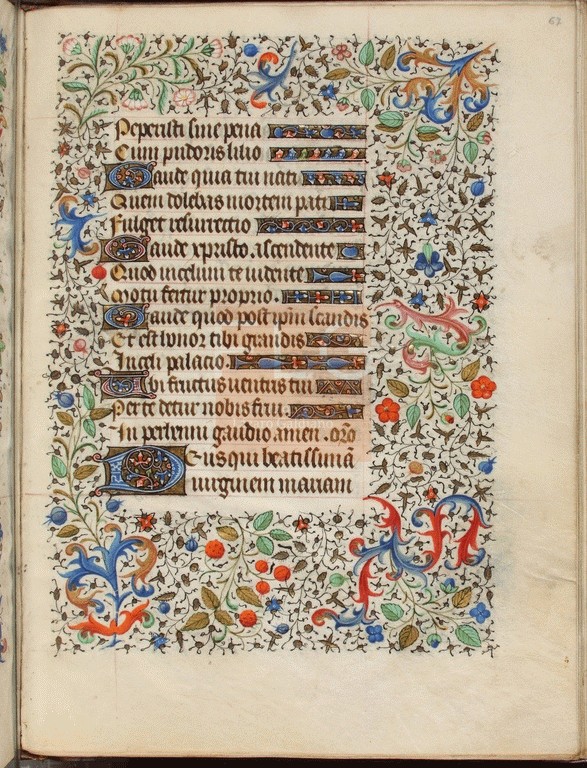 67
Peperisti sine pena
Cum pudoris lilio
Gaude quia tui nati
Quem dolebas mortem pati
Fulget resurrectio
Gaude xpristo ascendente
Quod in celum te uidente
Motu fertur proprio.
Gaude quod post ipm̄ scandis
Et est honor tibi grandis
In celi palacio
Ubi fructus uentris tui
Per te detur nobis frui
In perhenni gaudio. amen. orō
Deus qui beatissimā
uirginem mariam